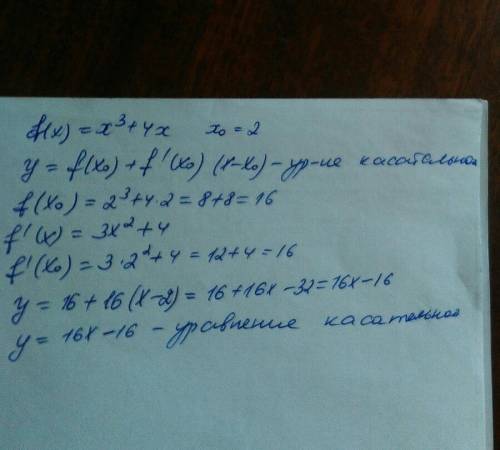 f(x) = x³ + 4x    x₀ = 2
y = f(x₀) + f'(x₀) (x - x₀) - ур-ие касательной
f(x₀) = 2³ + 4·2 = 8 + 8 = 16
f'(x) = 3x² + 4
f'(x₀) = 3·2² + 4 = 12 + 4 = 16
y = 16 + 16(x - 2) = 16 + 16x - 32 = 16x - 16
y = 16x - 16 - уравнение касательной